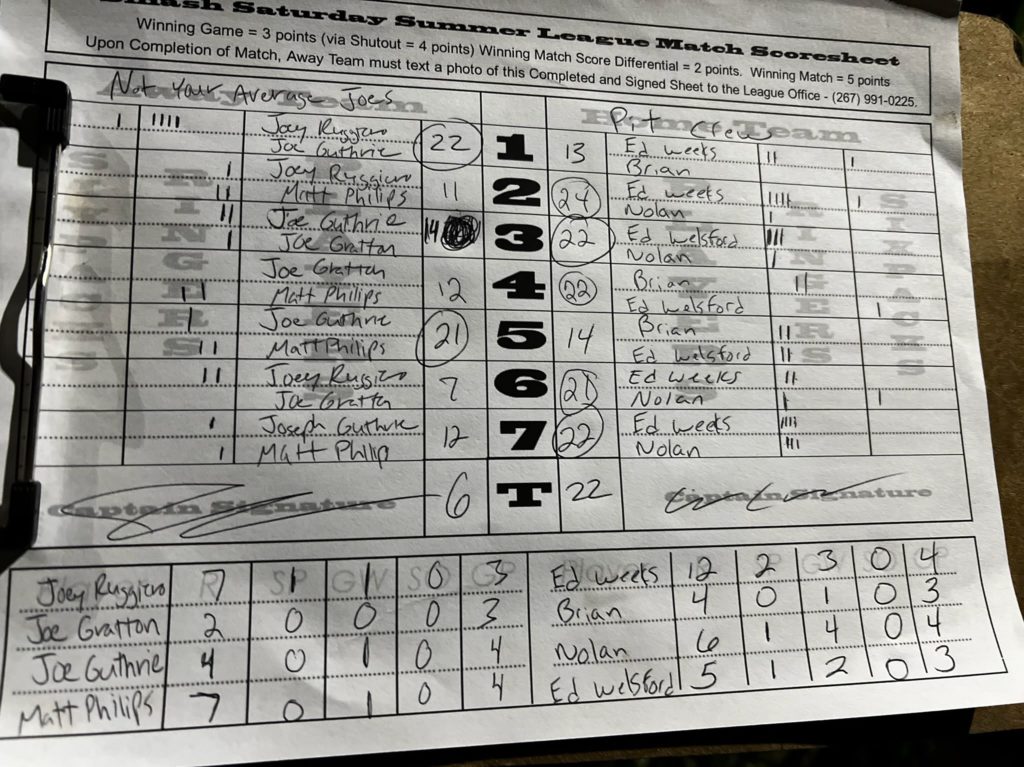 Smash Saturday Summer League Match Scoresheet
Winning Game = 3 points (via Shutout = 4 points) Winning Match Score Differential = 2 points. Winning Match = 5 points
Upon Completion of Match, Away Team must text a photo of this Completed and Signed Sheet to the League Office - (267) 991-0225.
Not Your Average Joes Team
Pit Crew Home Team
I IIII Joey Ruggiero 22 1 13 Ed weeks II I
Joe Guthrie Brian
I Joey Ruggiero 11 2 24 Ed weeks IIII I
II Matt Philips Nolan I
II Joe Guthrie 14 3 22 Ed welsford III
I Joe Gratton Nolan I
Joe Gratton 12 4 22 Brian II
II Matt Philips Ed welsford I
I Joe Guthrie 21 5 14 Brian II
II Matt Philips Ed welsford II
II Joey Ruggiero 7 6 21 Ed weeks II
Joe Gratton Nolan I I
I Joseph Guthrie 12 7 22 Ed weeks IIII
I Matt Philip Nolan III
Captain Signature 6 T 22 Captain Signature
Joey Ruggiero 7 1 1 0 3 Ed weeks 12 2 3 0 4
Joe Gratton 2 0 0 0 3 Brian 4 0 1 0 3
Joe Guthrie 4 0 1 0 4 Nolan 6 1 4 0 4
Matt Philips 7 0 1 0 4 Ed welsford 5 1 2 0 3